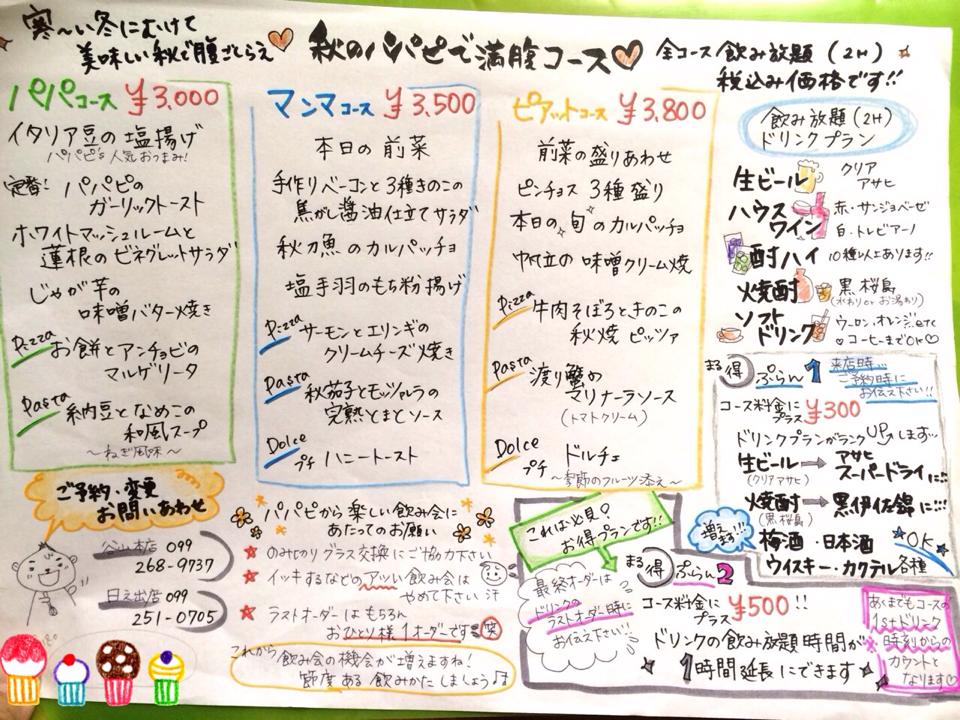 寒〜い冬にむけて
美味しい秋で腹ごしらえ
秋のパパピで満腹コース
全コース飲み放題(2H)
税込み価格です!!
パパコース ¥3,000
イタリア豆の塩揚げ
パパピ's人気おつまみ!
定番! パパピの
ガーリックトースト
ホワイトマッシュルームと
蓮根のビネグレットサラダ
じゃが芋の
味噌バター焼き
Pizza お餅とアンチョビの
マルゲリータ
Pasta 納豆となめこの
和風スープ
〜ねぎ風味〜
マンマコース ¥3,500
本日の前菜
手作りベーコンと3種きのこの
焦がし醤油仕立てサラダ
秋刀魚のカルパッチョ
塩手羽のもち粉揚げ
Pizza サーモンとエリンギの
クリームチーズ焼き
Pasta 秋茄子とモッツァレラの
完熟とまとソース
Dolce プチ ハニートースト
ピアットコース ¥3,800
前菜の盛りあわせ
ピンチョス 3種盛り
本日の旬のカルパッチョ
帆立の味噌クリーム焼
Pizza 牛肉そぼろときのこの
秋焼ピッツァ
Pasta 渡り蟹の
マリナーラソース
(トマトクリーム)
Dolce プチ ドルチェ
〜季節のフルーツ添え〜
飲み放題(2H)
ドリンクプラン
生ビール クリア
アサヒ
ハウス 赤・サンジョベーゼ
ワイン 白・トレビアーノ
酎ハイ 10種以上あります!!
焼酎 黒桜島
(水わり or お湯わり)
ソフト
ドリンク ウーロン、オレンジ…etc
コーヒーまでOK
まる得 ぷらん1
来店時、
ご予約時に
お伝え下さい!!
コース料金に
プラス ¥300
ドリンクプランがランクUPします…
生ビール → アサヒ
(クリアアサヒ) スーパードライに…!!
焼酎 → 黒伊佐錦に…!!
(黒桜島)
増えます!!
梅酒・日本酒
ウイスキー・カクテル各種
OK
ご予約・変更
お問いあわせ
谷山本店 099
268-9737
日之出店 099
251-0705
パパピから楽しい飲み会に
あたってのお願い
のみきりグラス交換にご協力下さい
イッキするなどのアツい飲み会は
やめて下さい 汗
ラストオーダーはもちろん
おひとり様1オーダーです 笑
これから飲み会の機会が増えますね!
節度ある飲みかたしましょう♪
これは必見?
お得プランです!!
最終オーダーは
ドリンクの
ラストオーダー時に
お伝え下さい!!
まる得 ぷらん2
コース料金に
プラス ¥500!!
ドリンクの飲み放題時間が
1時間延長にできます
あくまでもコースの
1stドリンク
時刻からの
カウントと
なります